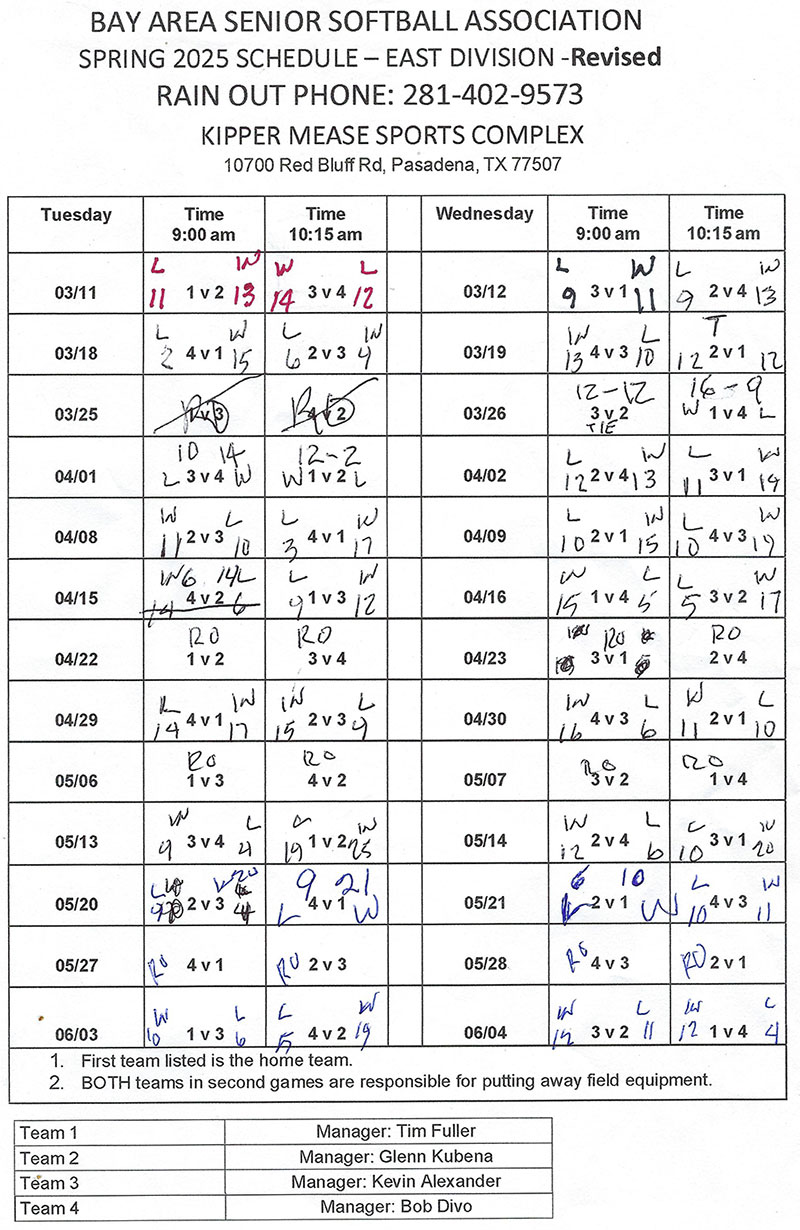 BAY AREA SENIOR SOFTBALL ASSOCIATION
SPRING 2025 SCHEDULE – EAST DIVISION -Revised
RAIN OUT PHONE: 281-402-9573
KIPPER MEASE SPORTS COMPLEX
10700 Red Bluff Rd, Pasadena, TX 77507
Tuesday Time Time Wednesday Time Time
9:00 am 10:15 am 9:00 am 10:15 am
L W W L L W L W
03/11 11 1 v 2 13 14 3 v 4 12 03/12 9 3 v 1 11 9 2 v 4 13
L W L W W L T
03/18 2 4 v 1 15 6 2 v 3 9 03/19 13 4 v 3 10 12 2 v 1 12
12-12 16-9
03/25 1 v 3 4 v 2 03/26 3 v 2 W 1 v 4 L
TIE
10 14 12-2 L W L W
04/01 L 3 v 4 W W 1 v 2 L 04/02 12 2 v 4 13 11 3 v 1 19
W L L W L W L W
04/08 11 2 v 3 10 3 4 v 1 17 04/09 10 2 v 1 15 10 4 v 3 19
W 6 14 L L W W L L W
04/15 14 4 v 2 6 9 1 v 3 12 04/16 15 1 v 4 5 5 3 v 2 17
RO RO RO RO
04/22 1 v 2 3 v 4 04/23 3 v 1 2 v 4
L W W L W L W L
04/29 14 4 v 1 17 15 2 v 3 9 04/30 16 4 v 3 6 11 2 v 1 10
RO RO RO RO
05/06 1 v 3 4 v 2 05/07 3 v 2 1 v 4
W L L W W L L W
05/13 9 3 v 4 4 19 1 v 2 25 05/14 12 2 v 4 6 10 3 v 1 20
L W 20 9 21 6 10 L W
05/20 9 2 v 3 L 4 v 1 W 05/21 L 2 v 1 W 10 4 v 3 11
05/27 RO 4 v 1 RO 2 v 3 05/28 RO 4 v 3 RO 2 v 1
W L L W W L W L
06/03 10 1 v 3 6 5 4 v 2 19 06/04 12 3 v 2 11 12 1 v 4 4
1. First team listed is the home team.
2. BOTH teams in second games are responsible for putting away field equipment.
Team 1 Manager: Tim Fuller
Team 2 Manager: Glenn Kubena
Team 3 Manager: Kevin Alexander
Team 4 Manager: Bob Divo